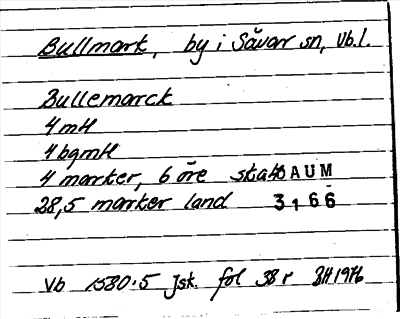 Bullmark, by i Sävar sn, Vb.l.
Bullemarck
4 mtl
4 bgmtl
4 marker, 6 öre skatt DAUM
28,5 marker land 3166
Vb 1580:5 Jsk. fol 38 r BH 1976